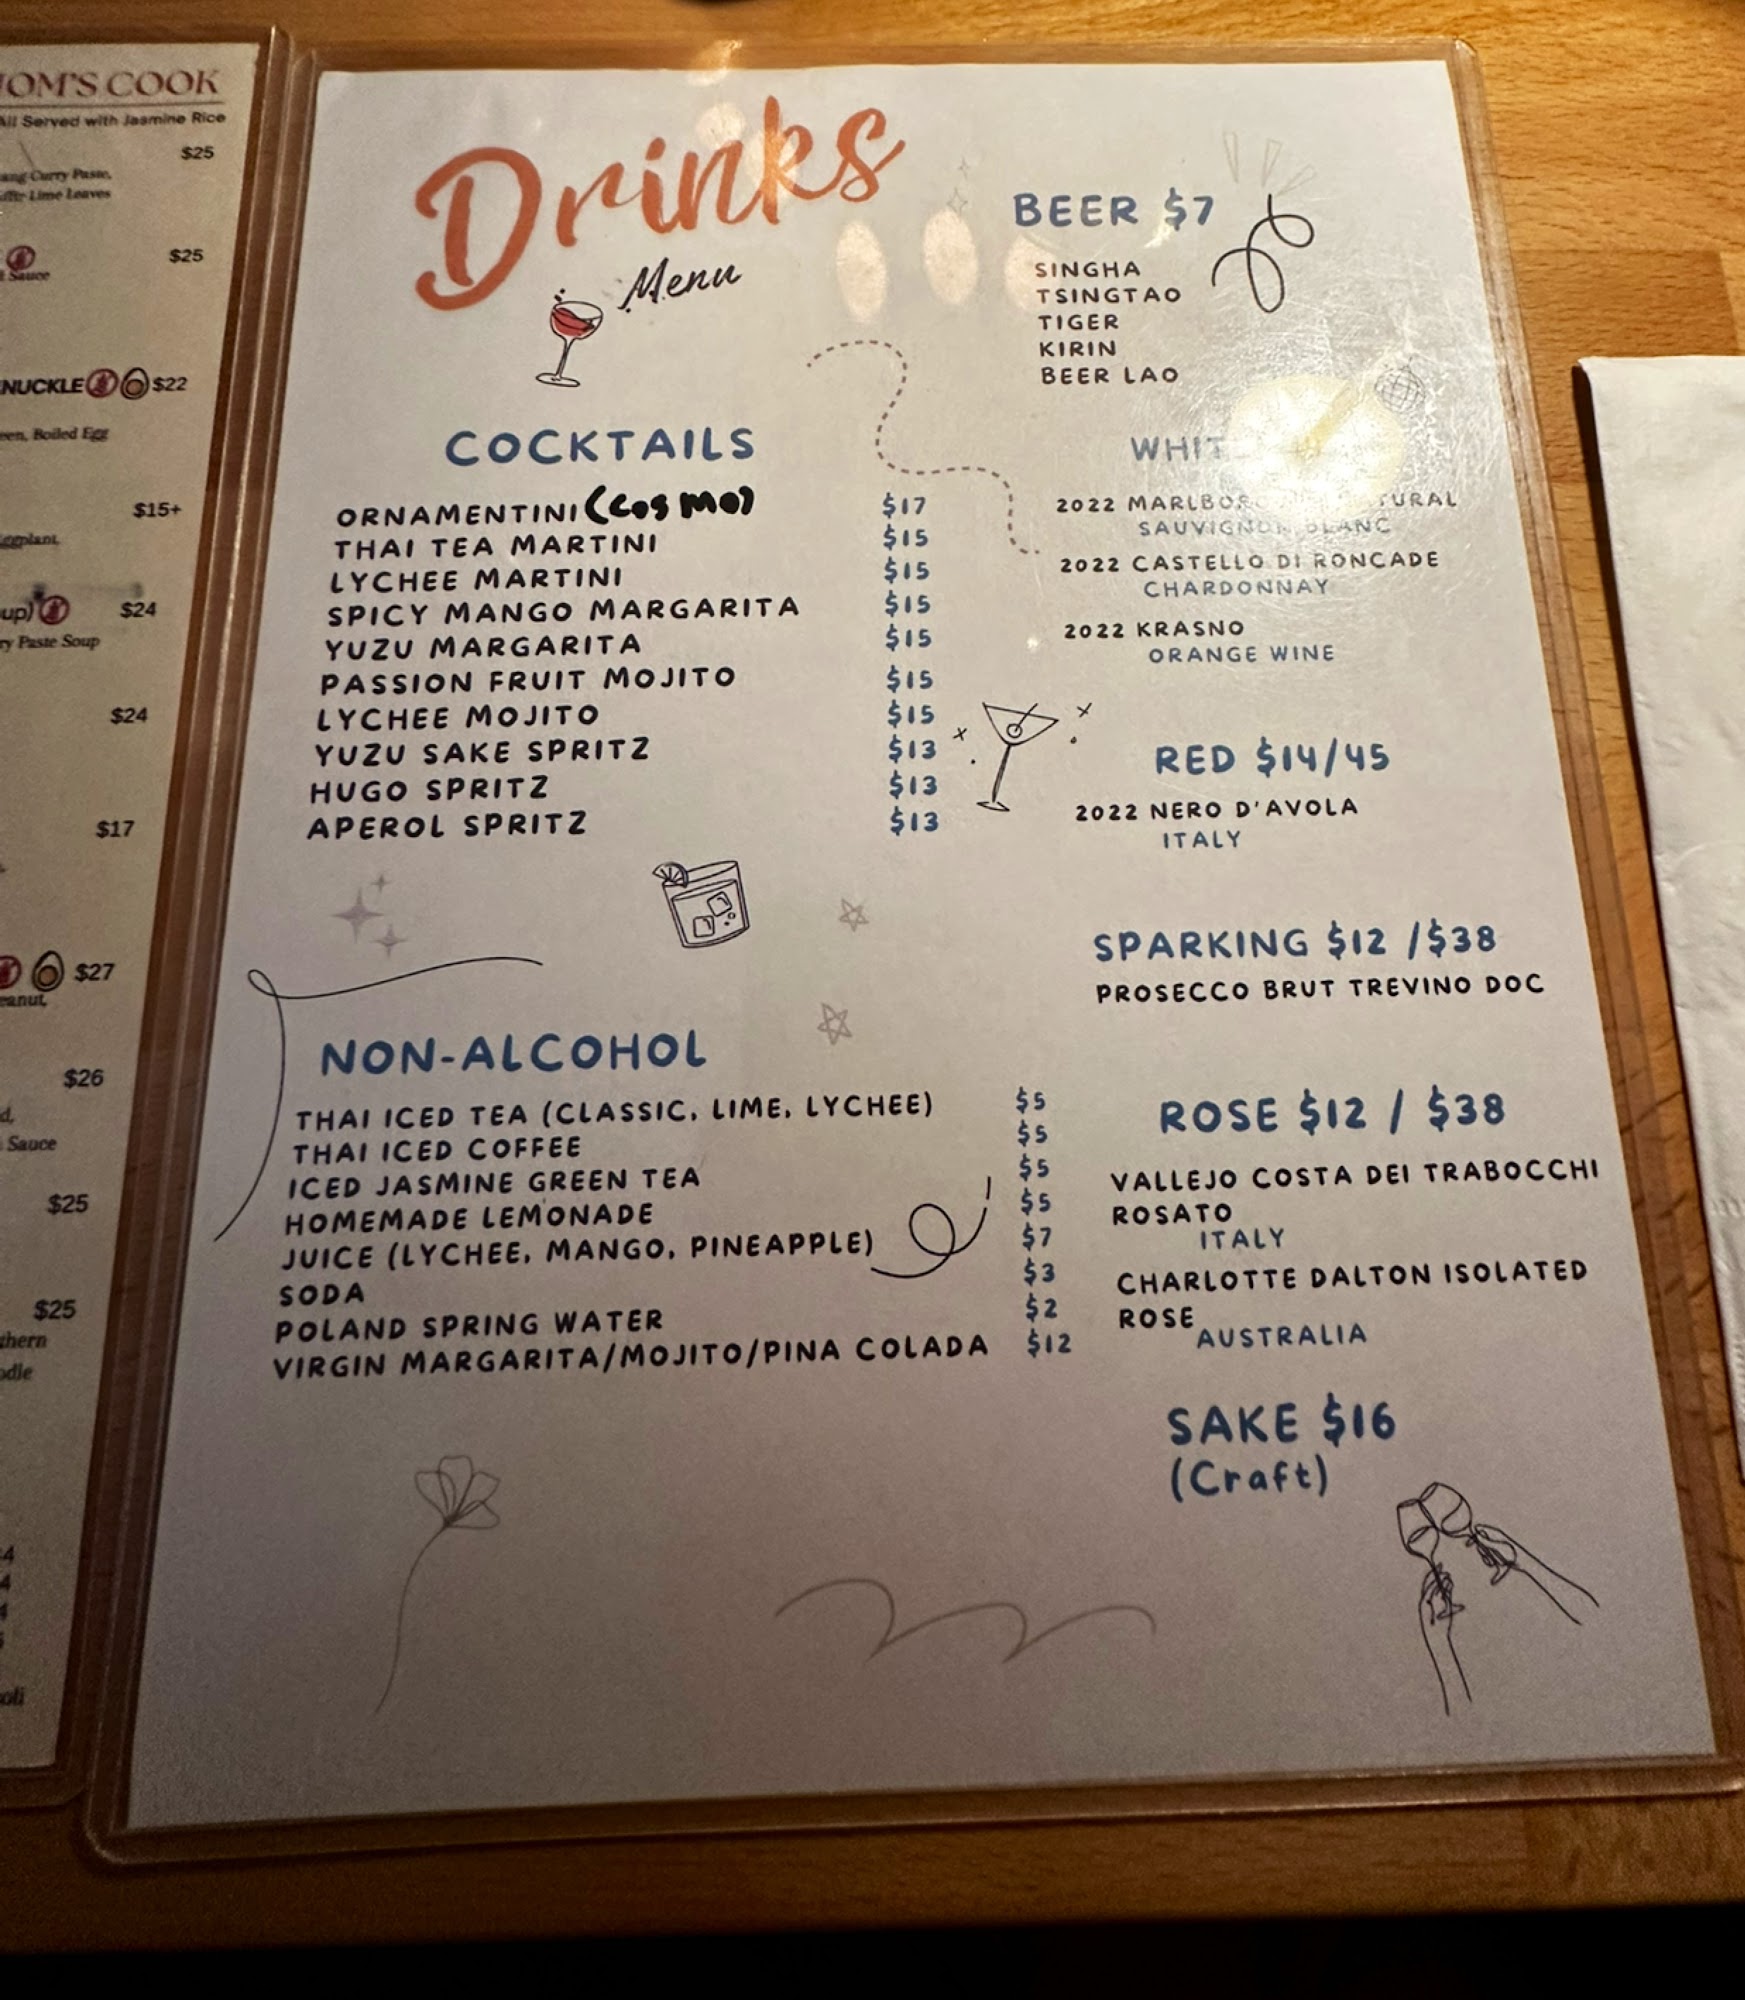 OM'S COOK
All Served with Jasmine Rice
$25
ang Curry Paste,
ffir Lime Leaves
$25
Sauce
NUCKLE $22
een, Boiled Egg
$15+
ggplant,
up) $24
ry Paste Soup
$24
$17
$27
eanut,
$26
d,
Sauce
$25
$25
thern
odle
4
4
oli
Drinks
Menu
COCKTAILS
ORNAMENTINI (COSMO) $17
THAI TEA MARTINI $15
LYCHEE MARTINI $15
SPICY MANGO MARGARITA $15
YUZU MARGARITA $15
PASSION FRUIT MOJITO $15
LYCHEE MOJITO $15
YUZU SAKE SPRITZ $13
HUGO SPRITZ $13
APEROL SPRITZ $13
NON-ALCOHOL
THAI ICED TEA (CLASSIC, LIME, LYCHEE) $5
THAI ICED COFFEE $5
ICED JASMINE GREEN TEA $5
HOMEMADE LEMONADE $5
JUICE (LYCHEE, MANGO, PINEAPPLE) $7
SODA $3
POLAND SPRING WATER $2
VIRGIN MARGARITA/MOJITO/PINA COLADA $12
BEER $7
SINGHA
TSINGTAO
TIGER
KIRIN
BEER LAO
WHIT
2022 MARLBO TURAL
SAUVIGNON BLANC
2022 CASTELLO DI RONCADE
CHARDONNAY
2022 KRASNO
ORANGE WINE
RED $14/45
2022 NERO D'AVOLA
ITALY
SPARKING $12 /$38
PROSECCO BRUT TREVINO DOC
ROSE $12 / $38
VALLEJO COSTA DEI TRABOCCHI
ROSATO
ITALY
CHARLOTTE DALTON ISOLATED
ROSE
AUSTRALIA
SAKE $16
(Craft)